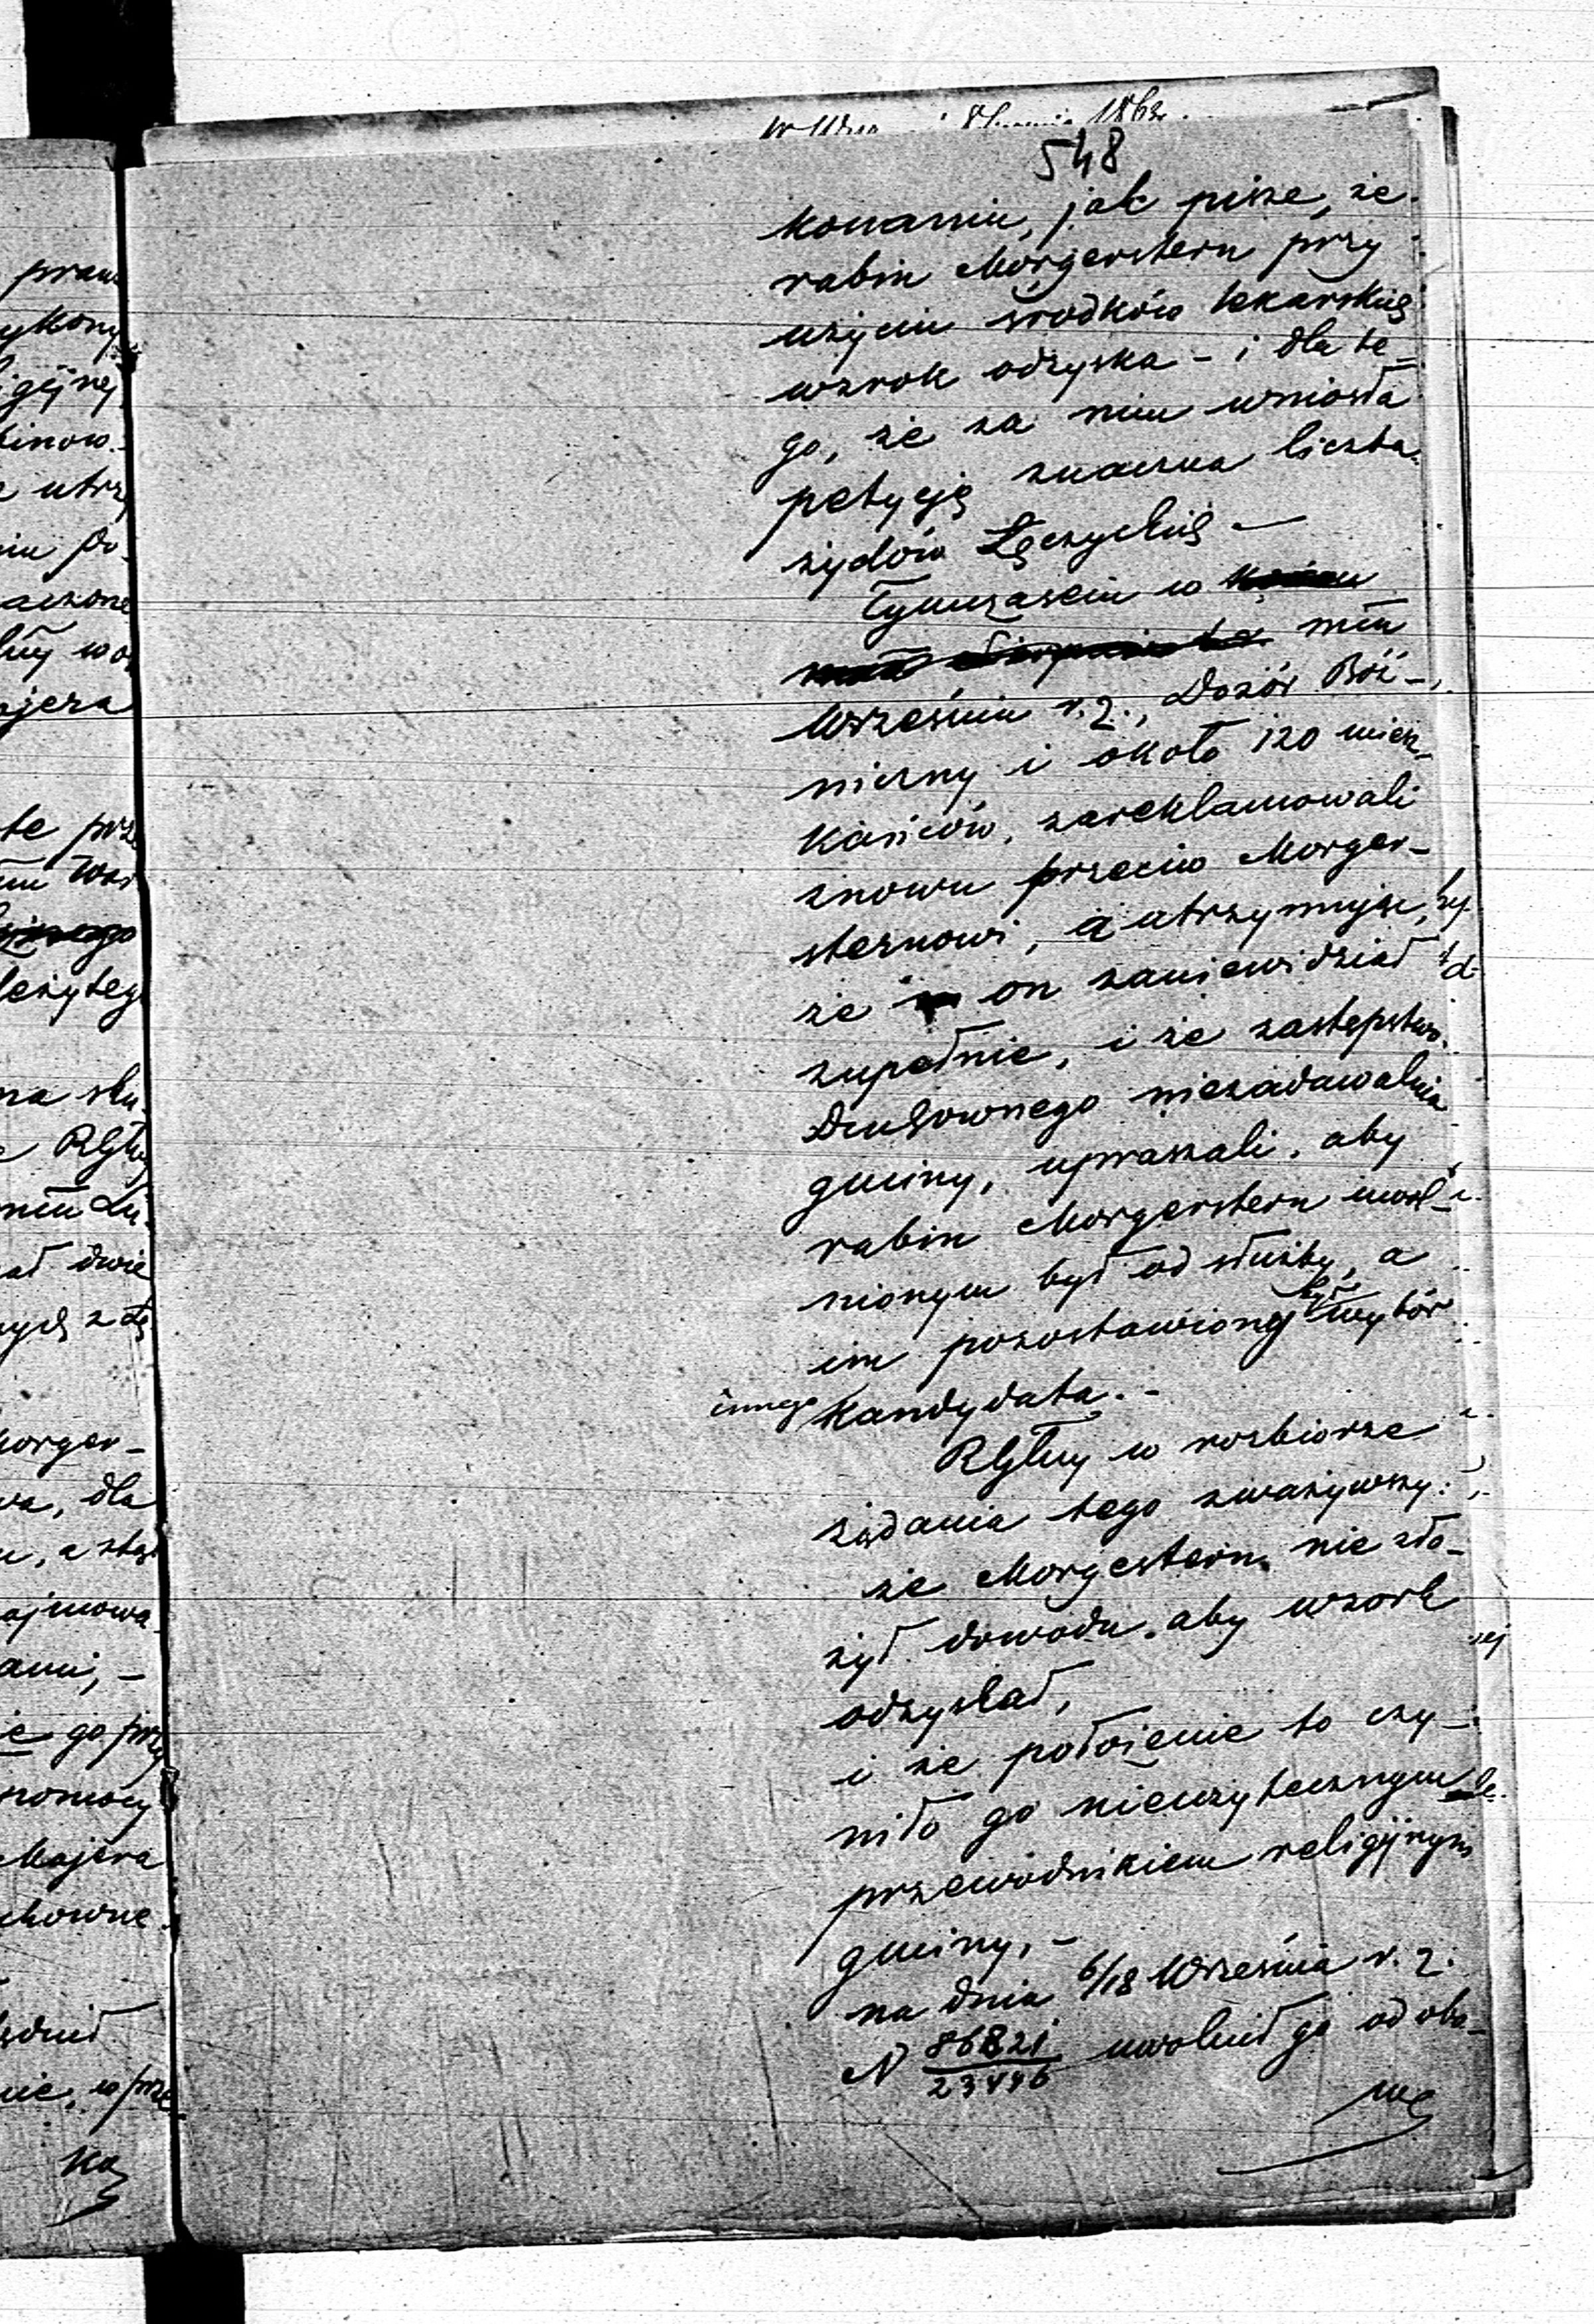 548
konaniu, jak pisze, że
rabin Morgerstern przy
użyciu środków lekarskich
wzrok odzyska - i dla te=
go, że za nim wniosła
petycję znaczna liczba
żydów Łęczyckich —
Tymczasem w
mcu
Wrześniu r. z., Dozór Bóź-
niczny i około 120 miesz-
kańców, zareklamowali
znowu przeciw Morger-
sternowi, a utrzymując,
że on zaniewidział
zupełnie, i że zastępstwo
Duchownego niezadawalnia
gminy, upraszali, aby
rabin Morgerstern uwol-
nionym był od służby, a
im pozostawiony był wybór
innego kandydata. -
RGlny w rozbiorze
żądania tego zważywszy:
że Morgestern nie zło-
żył dowodu, aby wzork
odzyskał,
i że położenie to czy-
niło go nieużytecznym
przewodnikiem religijnym
gminy, -
na dnia 6/18 Września r. z.
N 86821/23446 uwolnił go od obo-
prawa
ykony
igijnej
binow.
utrz
niu po-
aczone
jera
te prze
leżyteg
na słu
RGlny
ał dwie
ych z Łę
Morger-
wa, dla
u, a stąd
ajmowa
ami, -
ie go przy
pomocy
Majera
chowne
nie, w prze
ka